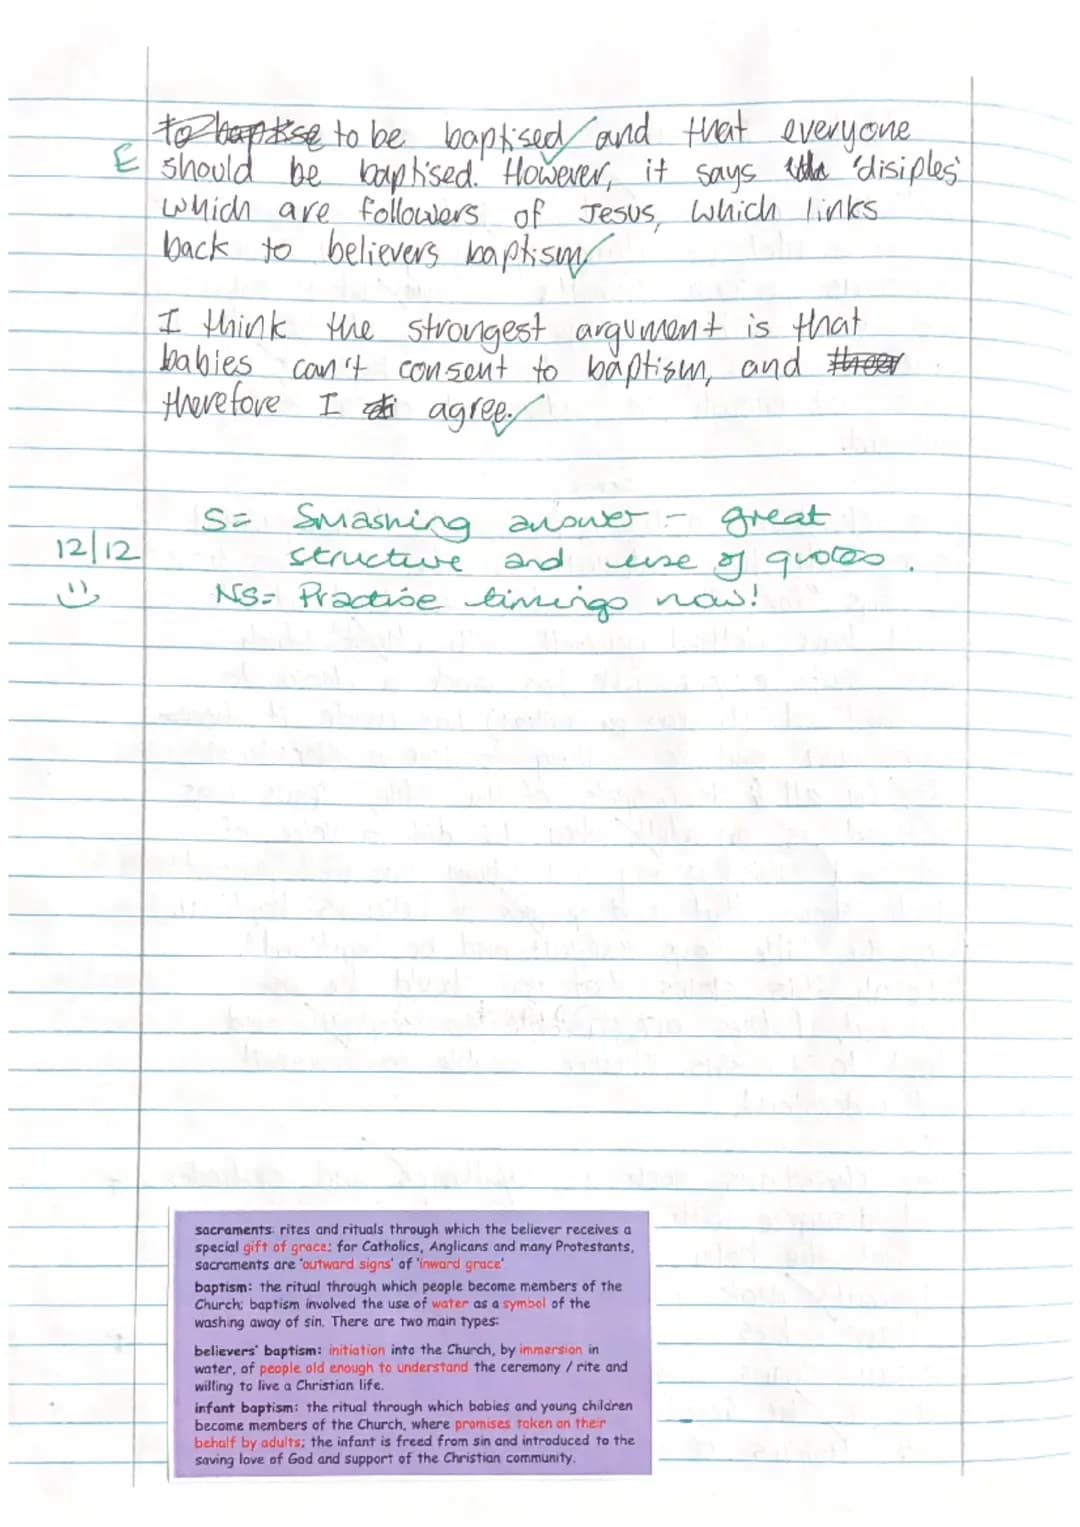 to baptise to be baptised and that everyone
E should be baptised. However, it says 'disiples'
which are followers of Jesus, which links
back to believers baptism
I think the strongest argument is that
babies can't consent to baptism, and
therefore I agree.
S= Smashing answer - great
12/12 structure and use of quotes.
NS= Practise timings now!
sacraments: rites and rituals through which the believer receives a
special gift of grace; for Catholics, Anglicans and many Protestants,
sacraments are 'outward signs' of 'inward grace'
baptism: the ritual through which people become members of the
Church; baptism involved the use of water as a symbol of the
washing away of sin. There are two main types:
believers' baptism: initiation into the Church, by immersion in
water, of people old enough to understand the ceremony / rite and
willing to live a Christian life.
infant baptism: the ritual through which babies and young children
become members of the Church, where promises taken on their
behalf by adults; the infant is freed from sin and introduced to the
saving love of God and support of the Christian community.